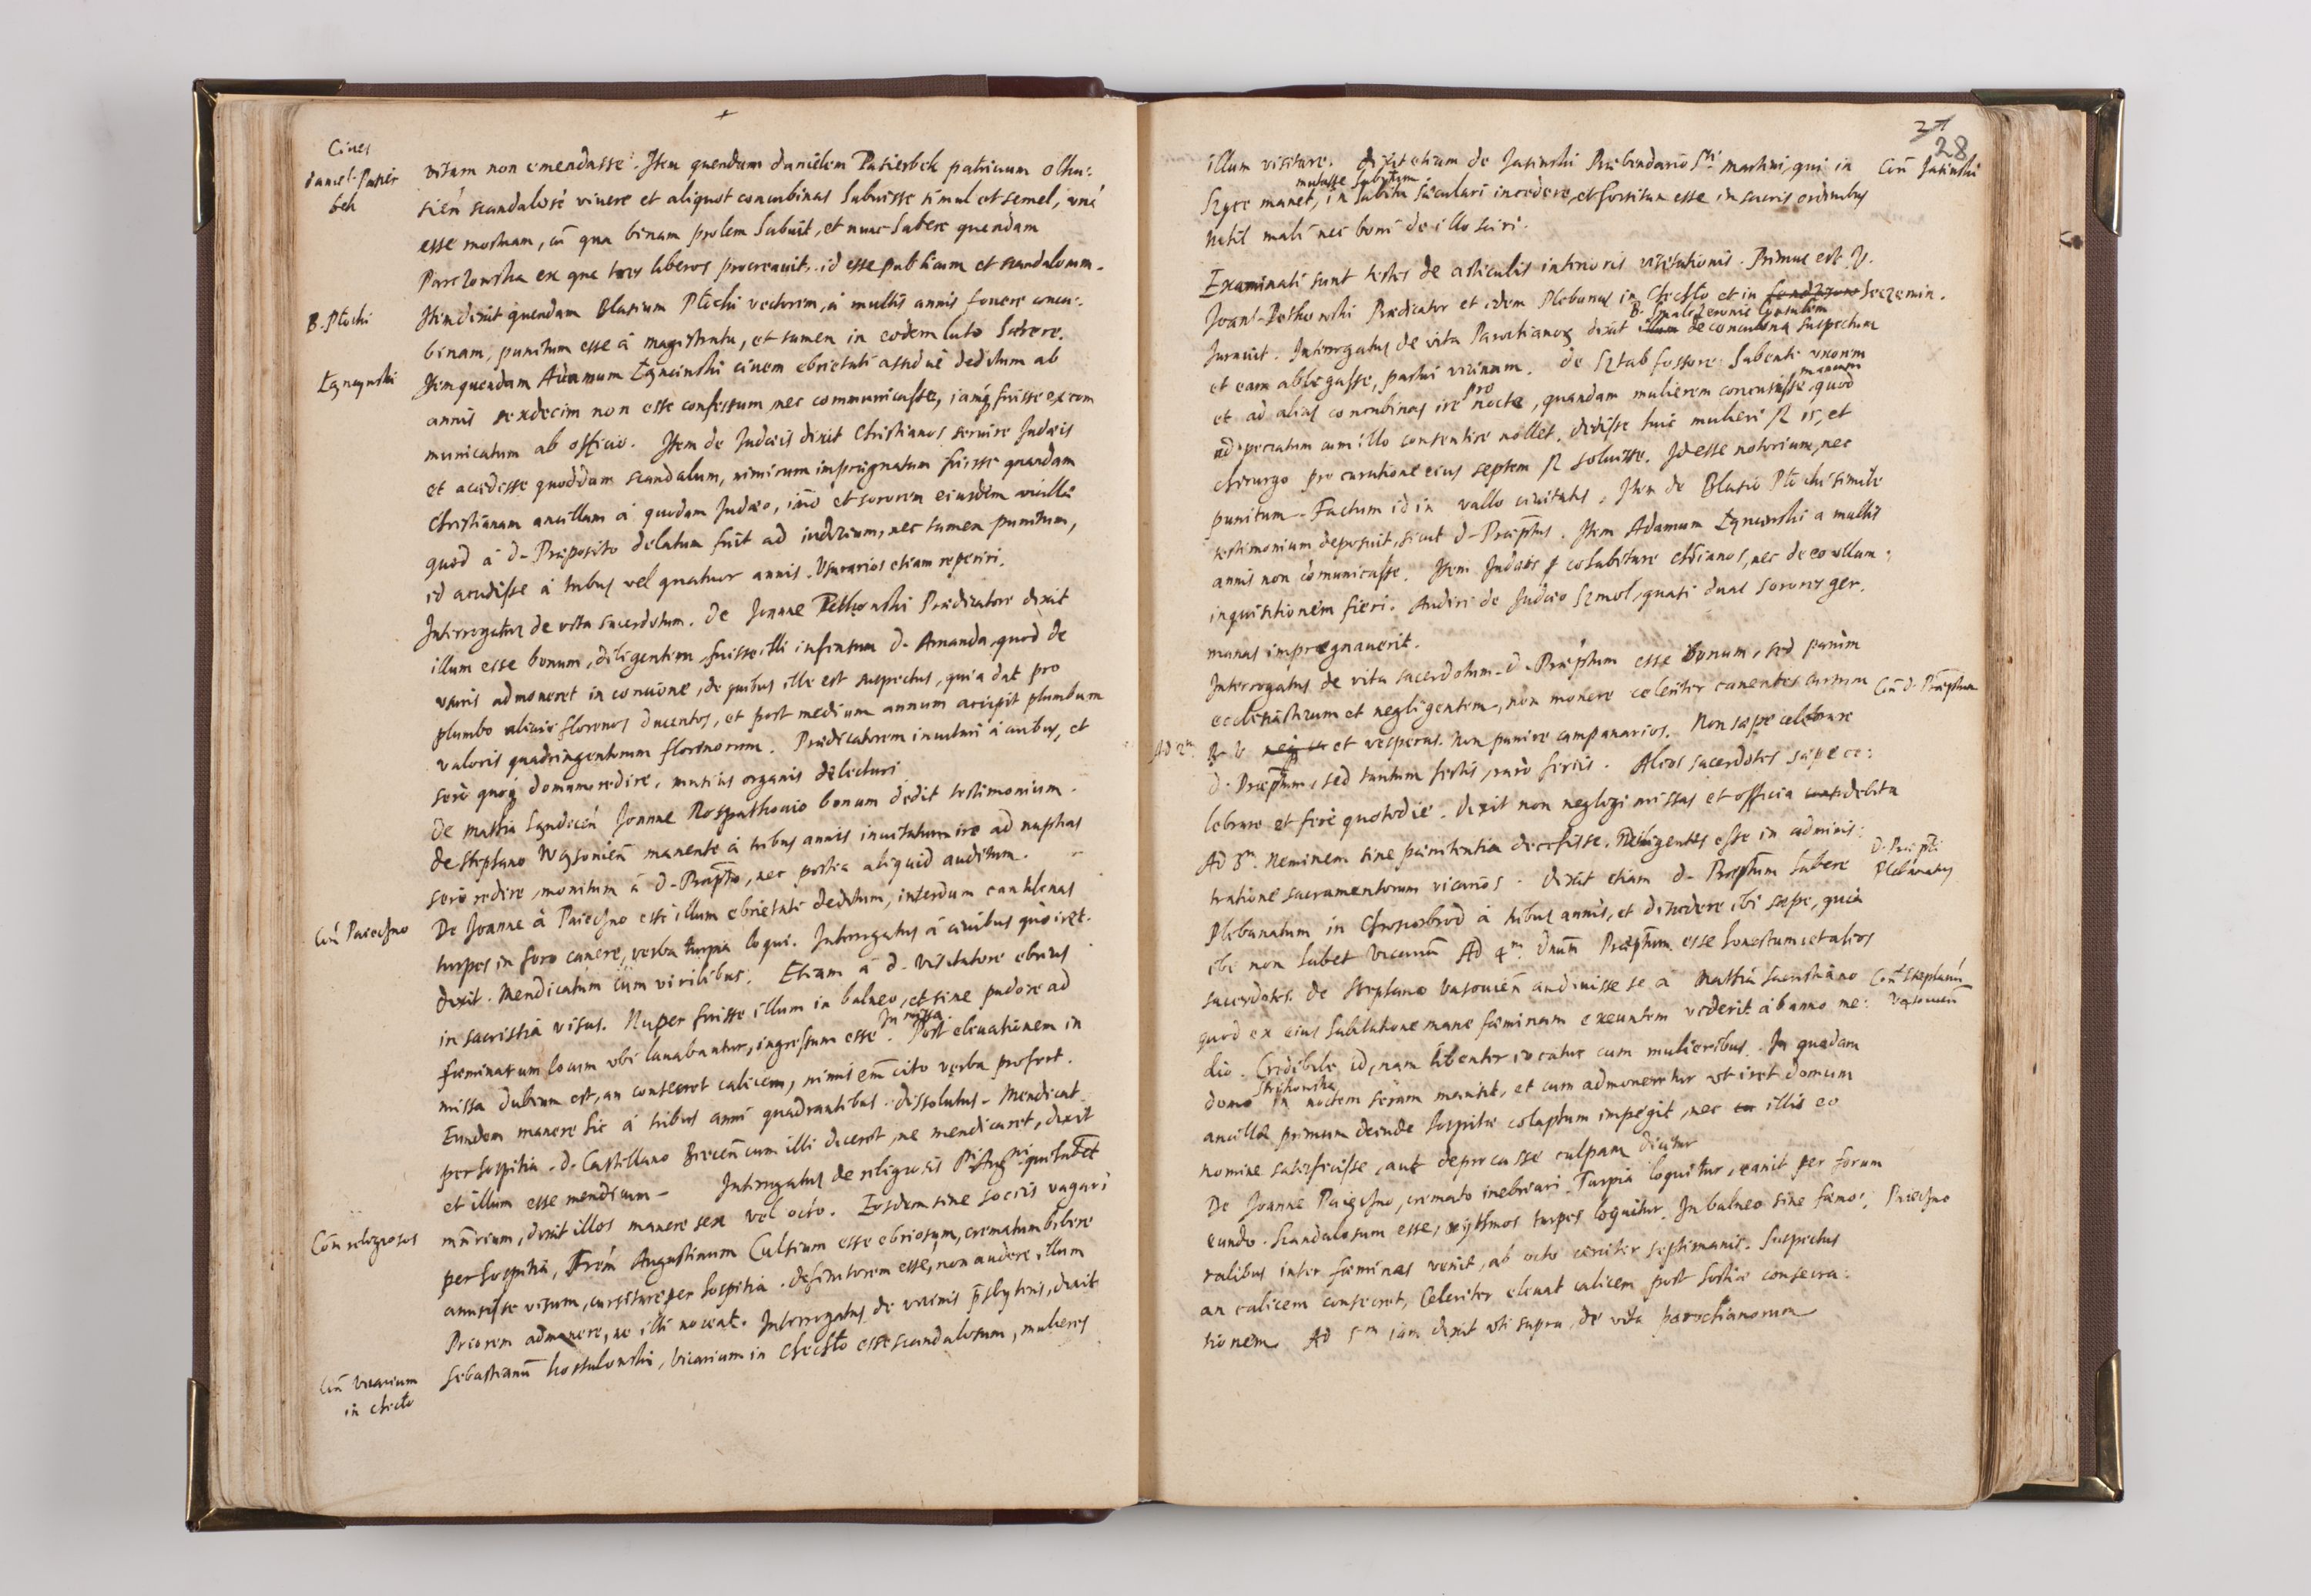 Cives
Daniel Pasier
bek
vitam non emendasse. Item quendam Danielem Pasierbek patricium Olku:
sień scandalosè vivere et aliquot concubinas habuisse simul et semel, unã
esse mortuam, cũ qua binam prolem habuit, et nunc habere quandam
Parczowska ex qua tres liberos procreavit. id esse publicum et scandalosum.
B. Płochi
Item dixit quendam Blasium Płochi vectorem, à multis annis fovere concu:
binam, punitum esse à magistratu, et tamen in eodem luto hærere.
Łęncynski
Item quendam Adamum Łęncinski civem ebrietati assiduè deditum ab
annis sexdecim non esse confessum nec communicasse, iamq fuisse excom
municatum ab officio. Item de Judæis dixit Christianos servire Judæis
et accidisse quoddam scandalum, nimirum imprægnatam fuisse quandam
Christianam ancillam à quodam Judæo, imò et sororem eiusdem ancillæ
quod à D. Præposito delatum fuit ad iudicium, nec tamen punitum,
id accidisse à tribus vel quatuor annis. Usurarios etiam reperiri.
Interrogatus de vita sacerdotum. De Joanne Petkowski Prædicatore dixit
illum esse bonum, diligentem, fuisse illi infensum D. Amanda, quod de
usuris admoneret in concione, de quibus ille est suspectus, quia dat pro
plumbo alicui florenos ducentos, et post medium annum accipit plumbum
valoris quadringentorum florenorum. Prædicatorem invitari à civibus, et
serò quoq domum redire, musicis organis delectari
De Mathia Sandecen Joanne Rospathovio bonum dedit testimonium.
De Stephano Wąsonień manente à tribus annis invitatum ire ad nuptias
serò redire, monitum à D. Præpto, nec postea aliquid auditum.
Coñ Paiechno
De Joanne à Paiechno esse illum ebrietati deditum, interdum cantilenas
turpes in foro canere, verba turpia loqui. Interrogatus à civibus quò iret.
dixit. Mendicatum cum virilibus. Etiam à D. Visitatore ebrius
in sacristia visus. Nuper fuisse illum in balneo, et sine pudore ad
fæminarum locum ubi lavabantur, ingressum esse. In missa Post elevationem in
missa dubium est, an consecret calicem, nimis em cito verba profert.
Eundem manere hic à tribus anni quadrantibus. dissolutus. Mendicat
per hospitia. D. Castellano Biecen cum illi diceret, ne mendicaret, dixit
et illum esse mendicum - Interrogatus de religiosis Sti Augni qui habet
Coñ religiosos
mnrium, dixit illos manere sex vel octo. Eosdem sine sociis vagari
per hospitia, Frem Augustinum Cultium esse ebriosum, crematum bibere
annisisse visum, cursitare per hospitia. Definitorem esse, non audere illum
Priorem admonere, ne illi noceat. Interrogatus de vicinis psbyteris, dixit
Coñ Vicarium
in Chechło
Sebastianũ Kostulowski, vicarium in Chechło esse scandalosum, mulieres
28
illum visitare. Dixit etiam de Jasinski Præbendario Sti Martini, qui in
Coñ Jasinski
mutasse habitum
manet, in habitu sæculari incedere, et forsitan esse in sacris ordinibus
nihil mali nec boni de illo sciri.
Examinati sunt testes de articulis interioris visitationis. Primus est V.
Joans Petkowski Prædicator et idem Plebanus in Chechło et in Seczemin.
iuravit. Interrogatus de vita Parochianor dixit de concubina suspectum
et eam ablegasse, pastui vicinam. De Sztab fossore habenti uxorem
et ad alias concubinas ire pro nocte, quandam mulierem concussisse quod
ad peccatum cum illo consentire nollet, dedisse huic mulieri fl 15, et
chirurgo pro curatione eius septem fl soluisse. Id esse notorium, nec
punitum. Factum id in vallo civitatis. Item de Blasio Płochi simile
testimonium deposuit, sicut D. Præptus. Item Adamum Łęncinski a multis
annis non comunicasse. Item Judæis cohabitare chrianos, nec de eo ullam
inquisitionem fieri. Audiri de Judæo Szmol, quasi duas sorores ger:
manas imprægnaverit.
Interrogatus de vita sacerdotum. D. Præptum esse bonum, sed parùm
ecclesiasticum et negligentem, non monere celeriter canentes cursum
Coñ D. Præptum
Ad 2m
et vesperas. Non punire campanarios. Non sæpe celebrare
D. Præptum, sed tantum festis, rarò feriis. Alios sacerdotes sæpe ce:
lebrare et ferè quotidie. Dixit non neglegi missas et officia debita
Ad 3m. Neminem sine pænitentia decessisse. Neñligentes esse in adminis:
tratione sacramentorum vicarios. Dixit etiam D. Præptum habere
D. Præpti
Plebanatus
Plebanatum in Chroszobrod à tribus annis, et discedere ibi sæpe, quia
ibi non habet vicarium Ad 4m. Dnum Præptum esse honestum et alios
sacerdotes. De Stephano Vąsonień audivisse se à Mathia sacristiano
Coñ Stephanũ
Vąsonień
quod ex eius habitatione mane fæminam exeuntem viderit ab anno me:
dio. Credibile id, nam libenter iocatur cum mulieribus. In quadam
domo Strykowska in noctem seram mansit, et cum admoneretur ut iret domum
ancillæ primum deinde hospitæ colaphum impegit, nec illis eo
nomine satisfecisse, aut deprecasse culpam dicitur
De Joanne Paiechno, cremato inebriari. Turpia loquitur, canit per forum
Paiechno
eundo. Scandalosum esse, rythmos turpes loquitur. In balneo sine fæmo:
ralibus inter fæminas venit, ab octo circiter septimanis. Suspectus
an calicem consecret, Celeriter elevat calicem post hostiæ consecra:
tionem. Ad 5m iam dixit uti supra, de vita parochianorum